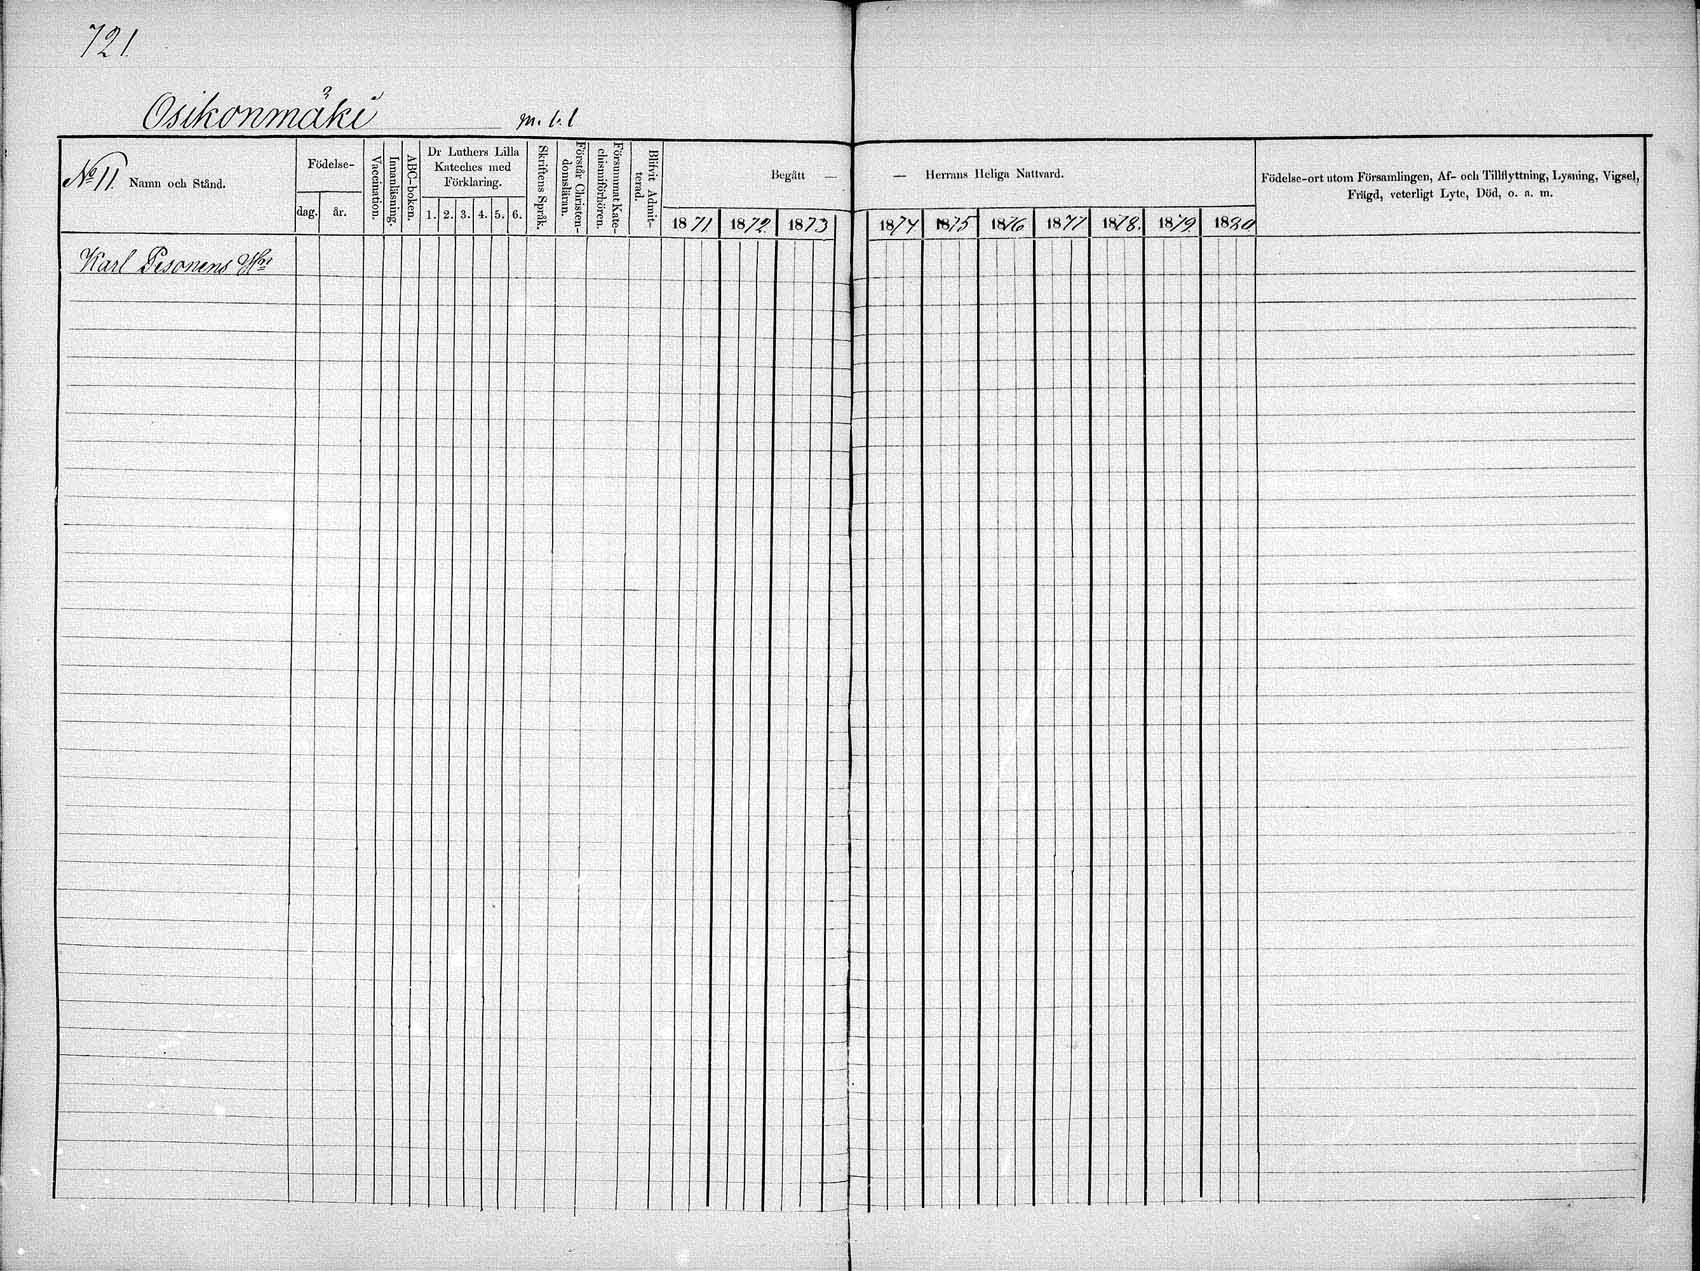 721.
Osikonmäki
No 11. Namn och Stånd.
Födelse-
dag. år.
Vaccination.
Innanläsning.
ABC-boken.
Dr Luthers Lilla
Kateches med
Förklaring.
1. 2. 3. 4. 5. 6.
Skriftens Språk.
Förstår Christen-
domsläran.
Försummat Kate-
chismiförhören.
Blifvit Admit-
terad.
Begått —
1871 1872. 1873
— Herrans Heliga Nattvard.
1874 1875 1876 1877 1878. 1879 1880
Födelse-ort utom Församlingen, Af- och Tillflyttning, Lysning, Vigsel,
Frägd, veterligt Lyte, Död, o. a. m.
Karl Pesonens